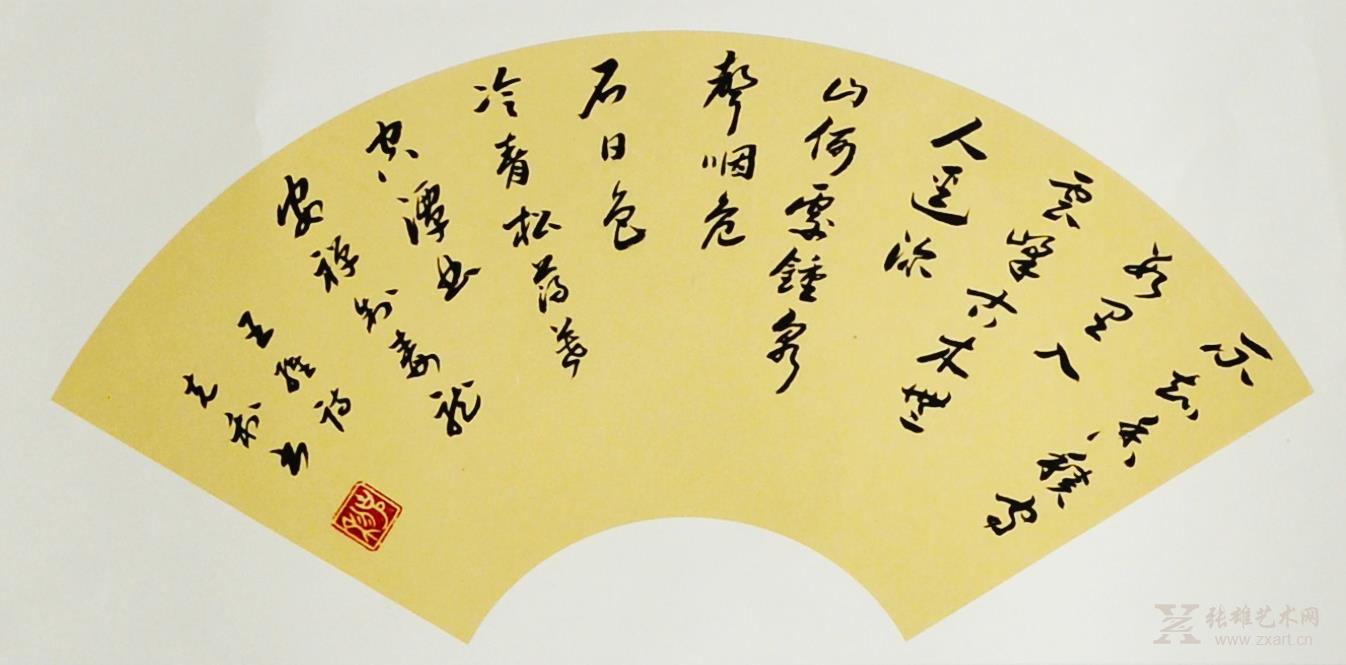 不知香積寺
数里入
雲峯古木無
人迳深
山何處鍾泉
聲咽危
石日色
冷青松薄暮
空潭曲
安禅制毒龙
王维诗
克书
张雄艺术网
www.zxart.cn